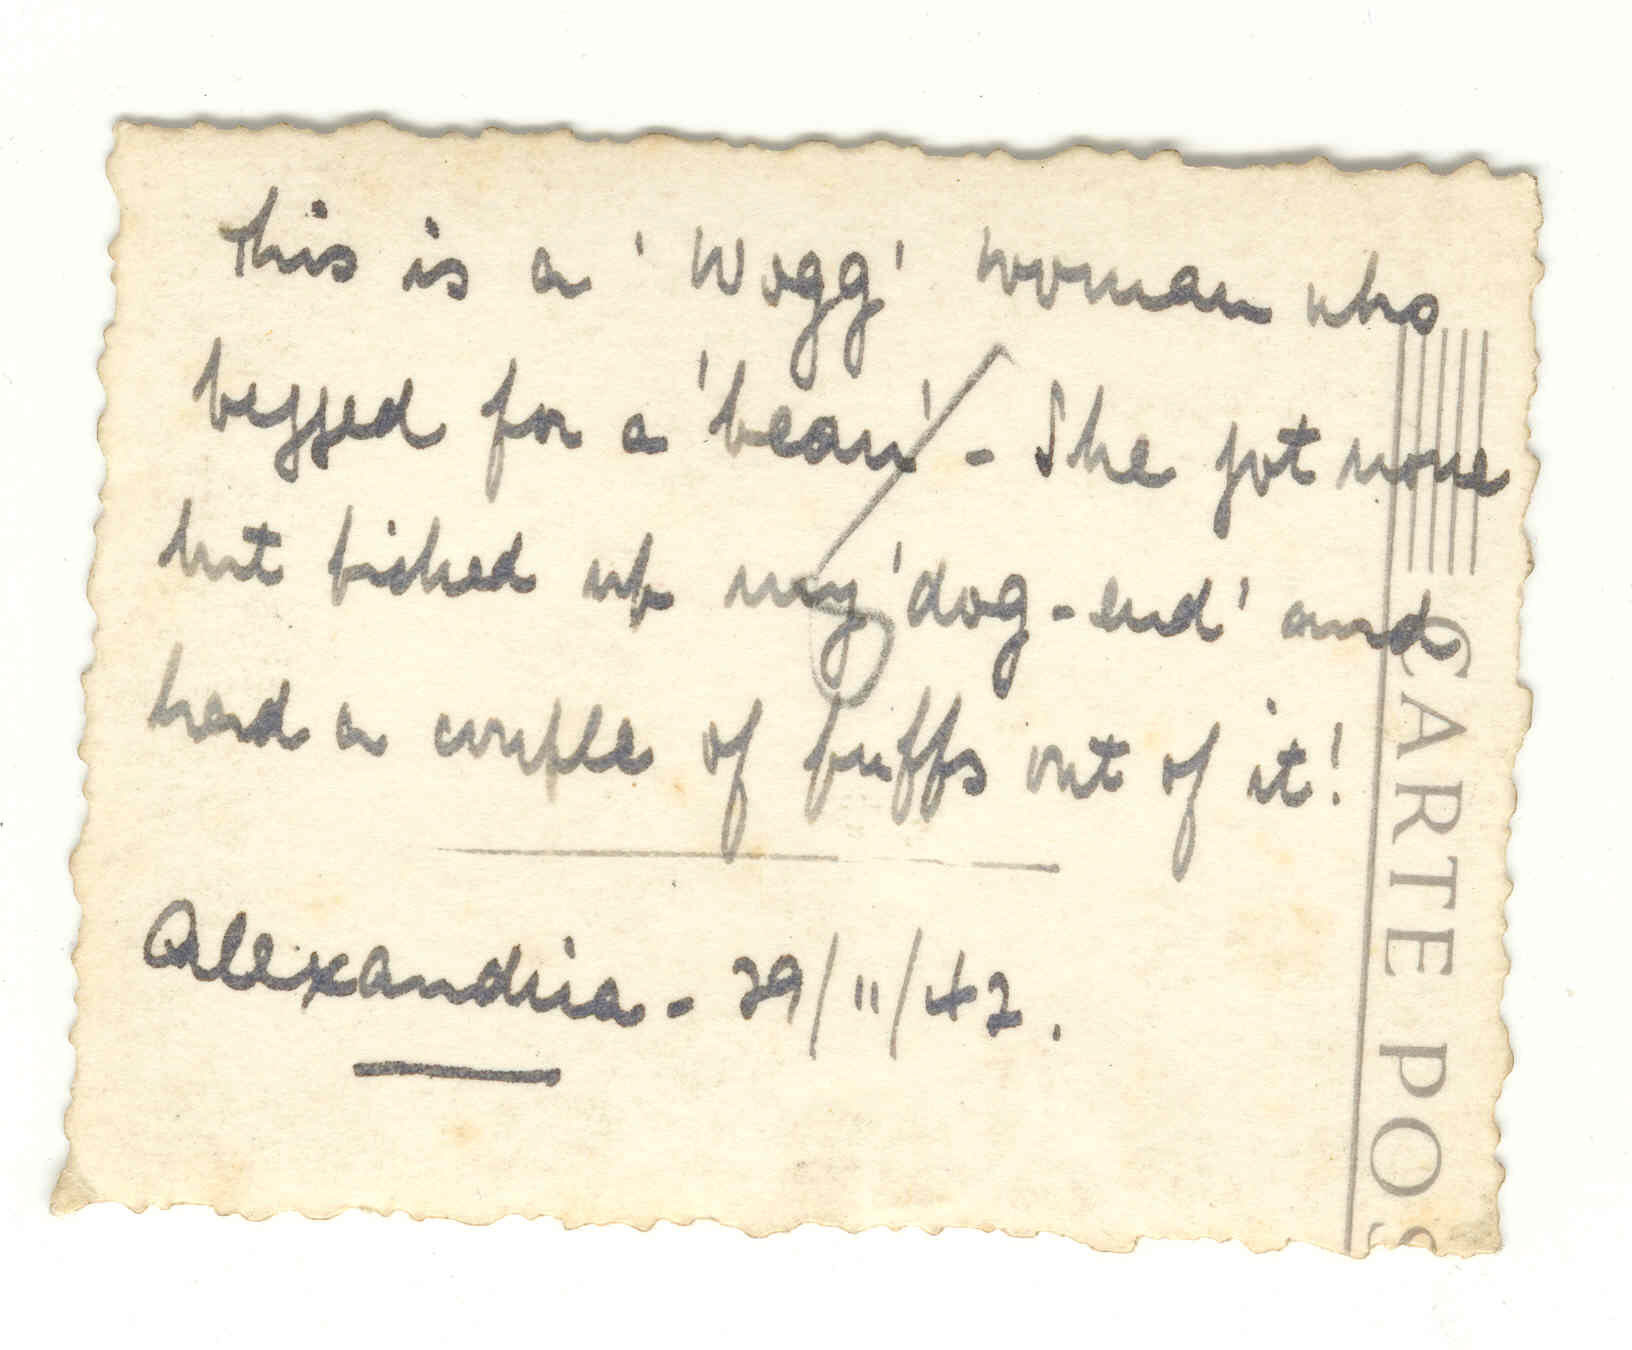 This is a 'Wogg' woman who
begged for a 'bean' - She got none
but picked up my 'dog-end' and
had a couple of puffs out of it!
Alexandria - 29/11/42.
CARTE POS